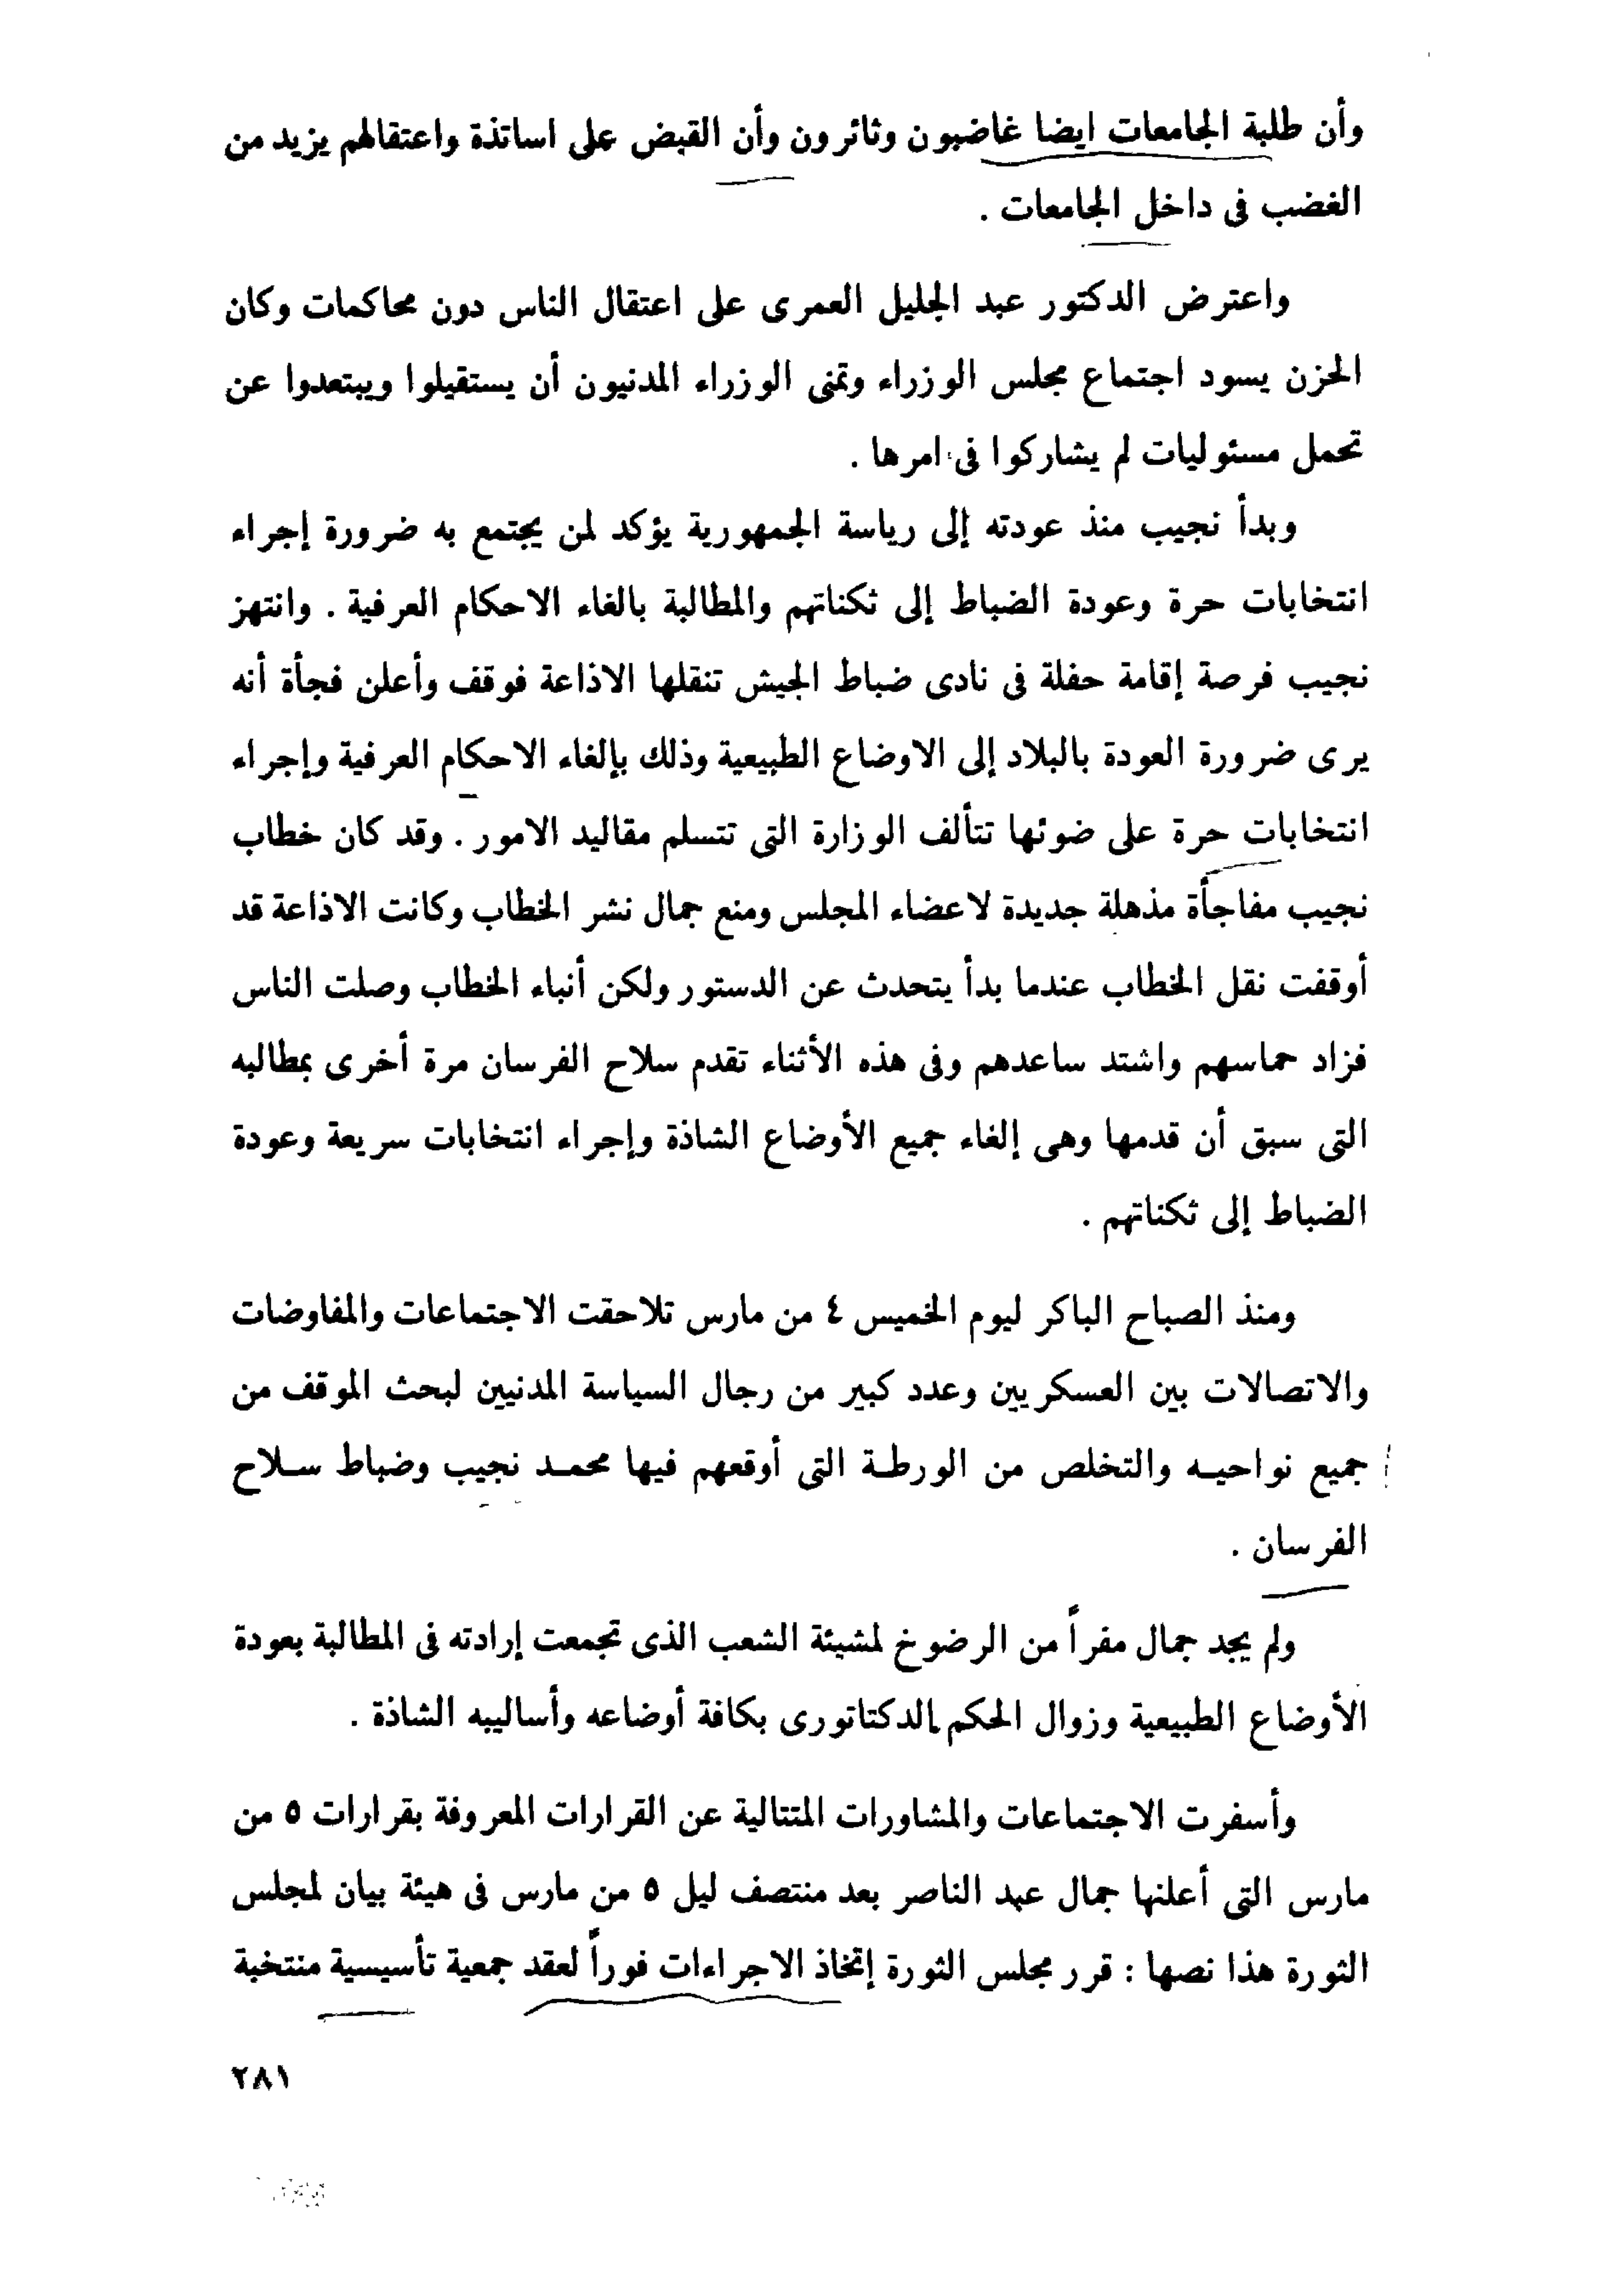 وأن طلبة الجامعات ايضا غاضبون وثائرون وأن القبض على اساتذة واعتقالهم يزيد من
الغضب فى داخل الجامعات .
واعترض الدكتور عبد الجليل العمرى على اعتقال الناس دون محاكمات وكان
الحزن يسود اجتماع مجلس الوزراء وتمنى الوزراء المدنيون أن يستقيلوا ويبتعدوا عن
تحمل مسئوليات لم يشاركوا فى امرها .
وبدأ نجيب منذ عودته إلى رياسة الجمهورية يؤكد لمن يجتمع به ضرورة إجراء
انتخابات حرة وعودة الضباط إلى ثكناتهم والمطالبة بالغاء الاحكام العرفية . وانتهز
نجيب فرصة إقامة حفلة فى نادى ضباط الجيش تنقلها الاذاعة فوقف وأعلن فجأة أنه
يرى ضرورة العودة بالبلاد إلى الاوضاع الطبيعية وذلك بإلغاء الاحكام العرفية وإجراء
انتخابات حرة على ضوئها تتألف الوزارة التى تتسلم مقاليد الامور . وقد كان خطاب
نجيب مفاجأة مذهلة جديدة لاعضاء المجلس ومنع جمال نشر الخطاب وكانت الاذاعة قد
أوقفت نقل الخطاب عندما بدأ يتحدث عن الدستور ولكن أنباء الخطاب وصلت الناس
فزاد حماسهم واشتد ساعدهم وفى هذه الأثناء تقدم سلاح الفرسان مرة أخرى بمطالبه
التى سبق أن قدمها وهى إلغاء جميع الأوضاع الشاذة وإجراء انتخابات سريعة وعودة
الضباط إلى ثكناتهم .
ومنذ الصباح الباكر ليوم الخميس ٤ من مارس تلاحقت الاجتماعات والمفاوضات
والاتصالات بين العسكريين وعدد كبير من رجال السياسة المدنيين لبحث الموقف من
جميع نواحيه والتخلص من الورطة التى أوقعهم فيها محمد نجيب وضباط سلاح
الفرسان .
ولم يجد جمال مفراً من الرضوخ لمشيئة الشعب الذى تجمعت إرادته فى المطالبة بعودة
الأوضاع الطبيعية وزوال الحكم الدكتاتورى بكافة أوضاعه وأساليبه الشاذة .
وأسفرت الاجتماعات والمشاورات المتتالية عن القرارات المعروفة بقرارات ٥ من
مارس التى أعلنها جمال عبد الناصر بعد منتصف ليل ٥ من مارس فى هيئة بيان لمجلس
الثورة هذا نصها : قرر مجلس الثورة إتخاذ الاجراءات فوراً لعقد جمعية تأسيسية منتخبة
٢٨١